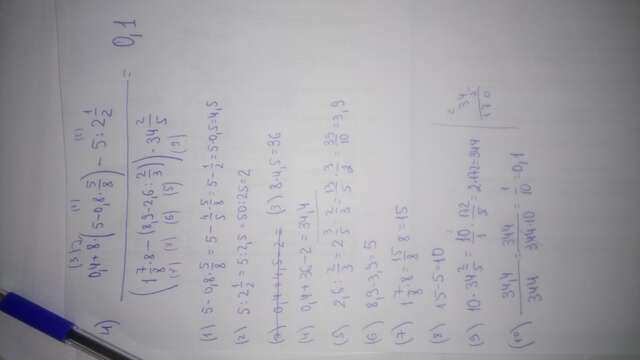 4) (3) 2) (1) (2)
0,4 + 8 · (5 - 0,8 · 5/8) - 5 : 2 1/2
(1 7/8 · 8 - (8,9 - 2,6 : 2/3)) · 34 2/5 = 0,1
(7) (8) (6) (5) (9)
(1) 5 - 0,8 · 5/8 = 5 - 4/5 · 5/8 = 5 - 1/2 = 5 - 0,5 = 4,5
(2) 5 : 2 1/2 = 5 : 2,5 = 50 : 25 = 2
(3) 8 · 4,5 = 36
(4) 0,4 + 36 - 2 = 34,4
(5) 2,6 : 2/3 = 2 3/5 · 3/2 = 13/5 · 3/2 = 39/10 = 3,9
(6) 8,9 - 3,9 = 5
(7) 1 7/8 · 8 = 15/8 · 8 = 15
(8) 15 - 5 = 10
(9) 10 · 34 2/5 = 10/1 · 172/5 = 2 · 172 = 344
2
34
5
170
(10) 34,4/344 = 344/344·10 = 1/10 = 0,1